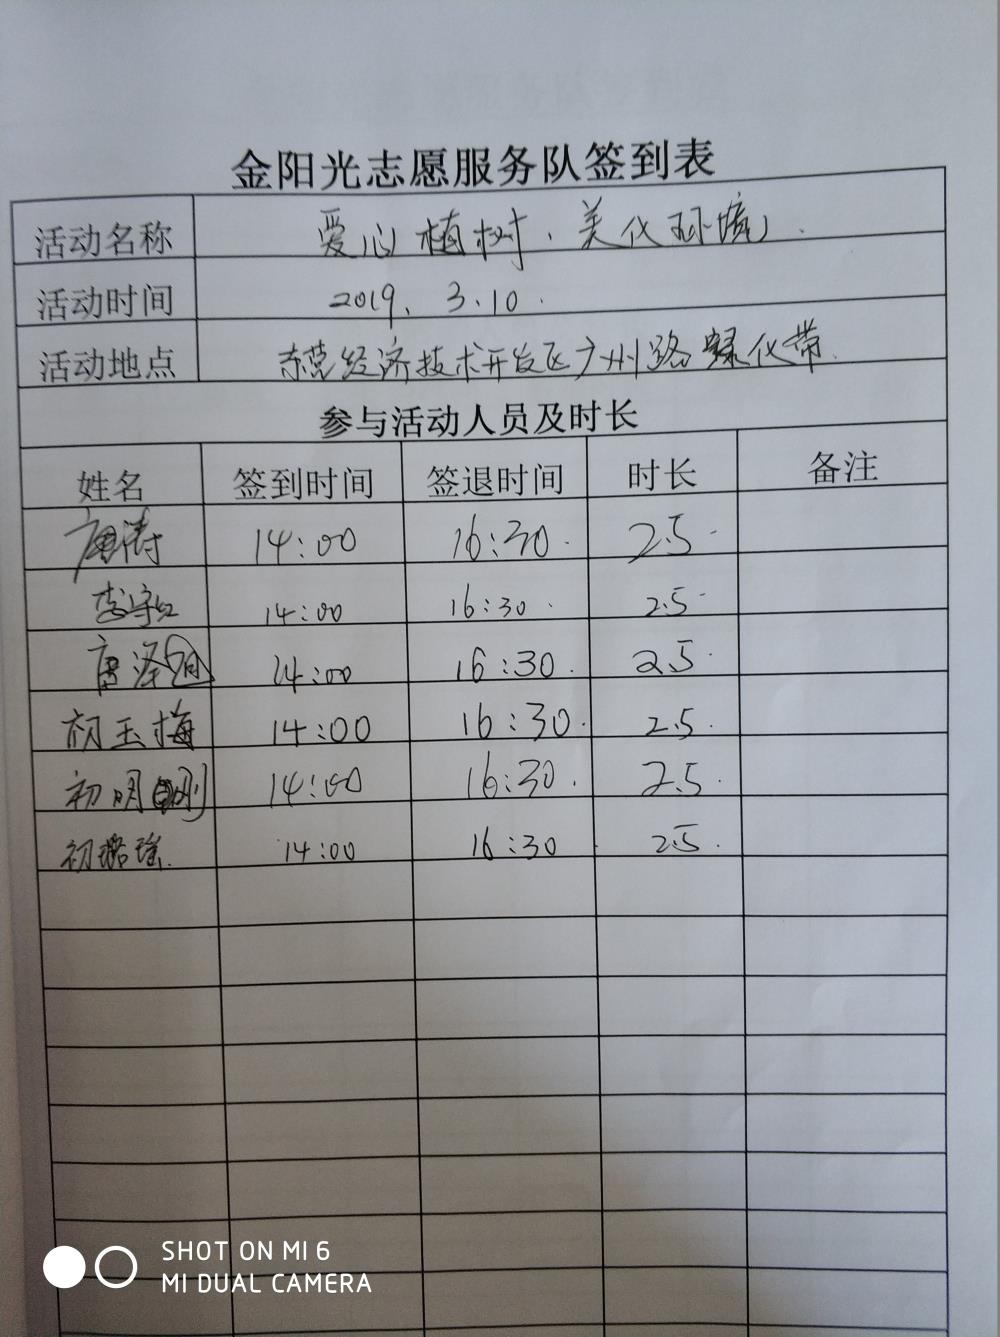 金阳光志愿服务队签到表
活动名称 爱心植树、美化环境
活动时间 2019.3.10.
活动地点 东营经济技术开发区广州路绿化带
参与活动人员及时长
姓名 签到时间 签退时间 时长 备注
唐涛 14:00 16:30 2.5
14:00 16:30 2.5
唐泽 14:00 16:30 2.5
初玉梅 14:00 16:30 2.5
初明刚 14:00 16:30 2.5
初璐瑶 14:00 16:30 2.5
SHOT ON MI 6
MI DUAL CAMERA